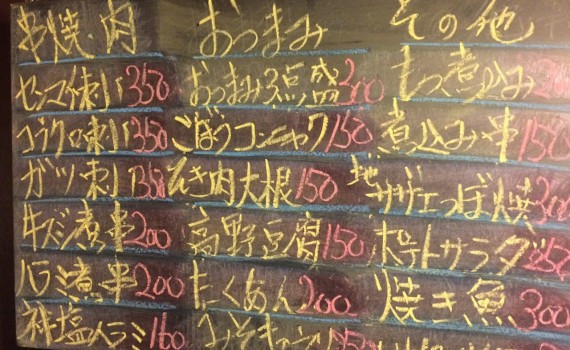 串焼・肉
センマイ刺し 350
コブクロ刺し 350
ガツ刺し 350
牛スジ煮串 200
ハラミ煮串 200
神塩ハラミ 160
おつまみ
おつまみ3点盛 300
ごぼうコンニャク 150
ひき肉大根 150
高野豆腐 150
たくあん 200
みそキャベツ
その他
もつ煮込み
煮込み串 150
地サザエつぼ焼 300
ポテトサラダ
焼き魚 300